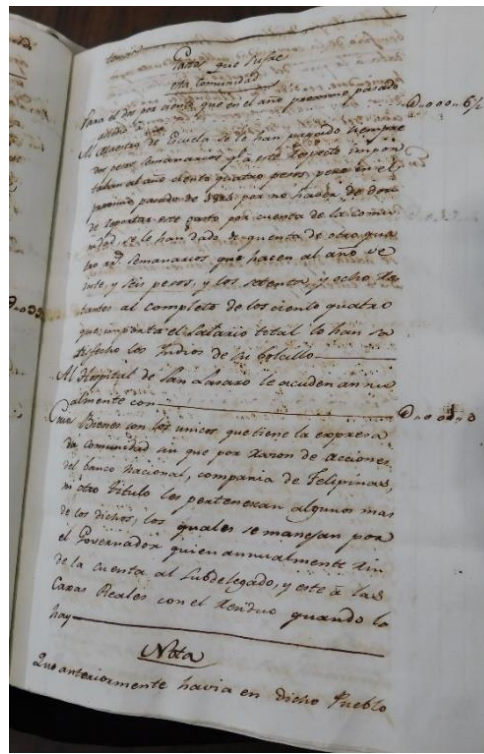 Gastos que sufre
dha Comunidad
Para el dos por ciento que en el año proximo pasado
Al Maestro de Escuela se le han pagado siempre
dos pesos semanarios y a este respecto impor
taban al año ciento quatro pesos, pero en el
proximo pasado de por no haber de don
de soportar este gasto por cuenta de la comu
nidad, se le han dado de quenta de otro qua
tro rs. semanarios que hacen al año ve
inte, y seis pesos, y los setenta, y ocho res
tantes al completo de los ciento quatro
que importa el salario total lo han sa
tisfecho los Indios de su bolcillo
Al Hospital de San Lasaro le acuden annu
almente con
Cuios Bienes son los unicos que tiene la expresa
da comunidad sin que por razon de acciones
del banco Nacional, compania de Felipinas,
ni otro titulo les pertenezcan algunos mas
de los dichos; los quales se manejan por
el Governador quien annualmente rin
de la cuenta al Subdelegado, y este a las
Caxas Reales con el reciduo quando lo
hay
Nota
Que anteriormente havia en dicho Pueblo